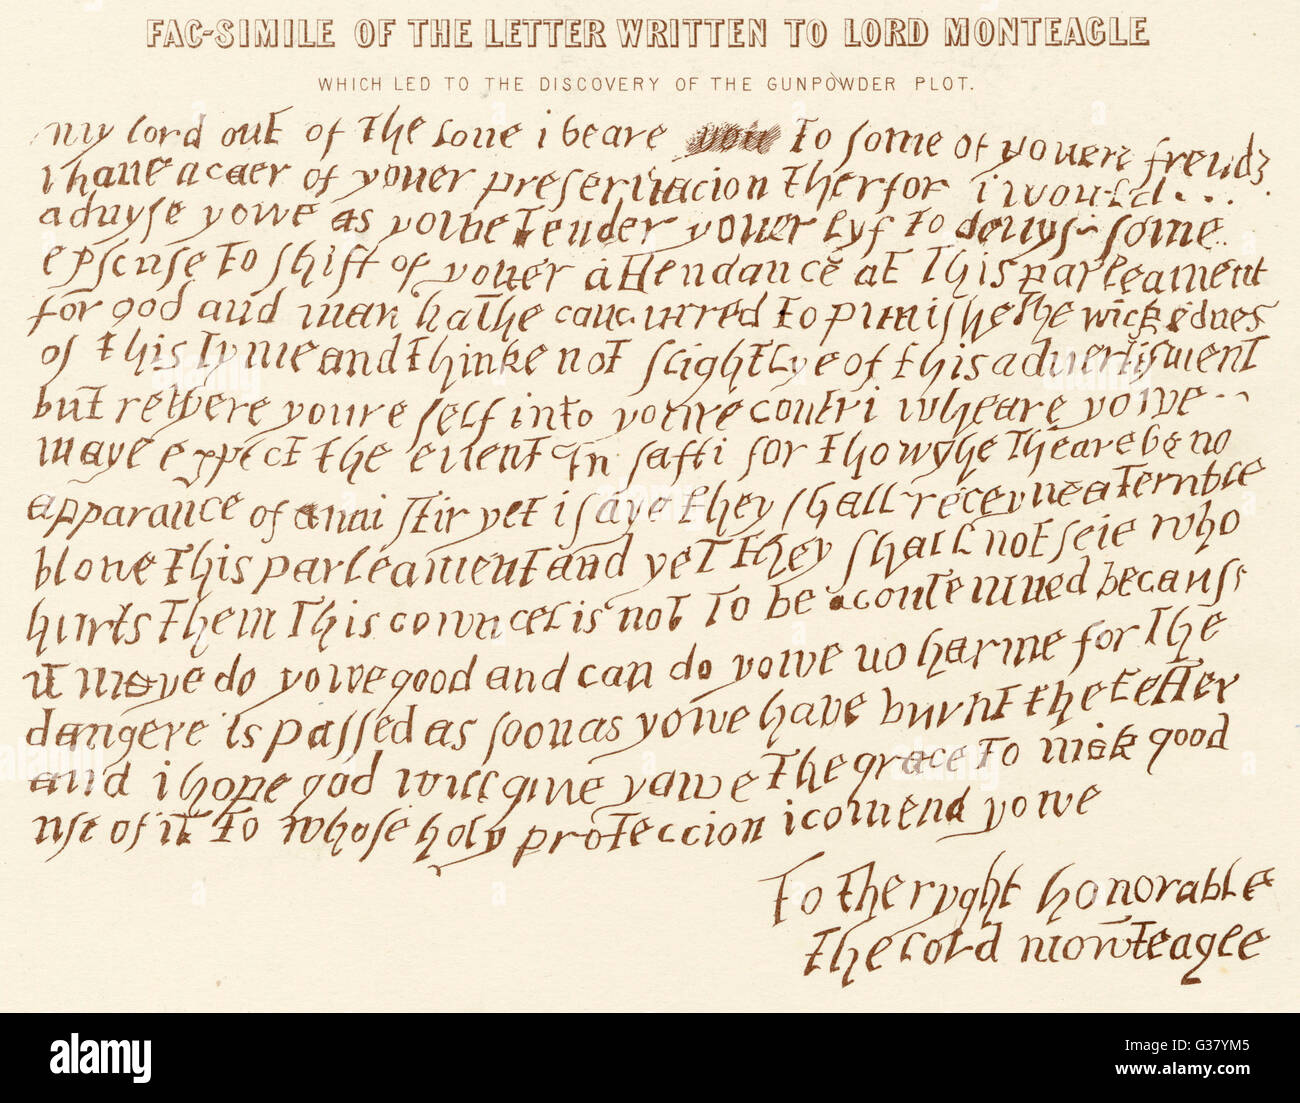 FAC-SIMILE OF THE LETTER WRITTEN TO LORD MONTEAGLE
WHICH LED TO THE DISCOVERY OF THE GUNPOWDER PLOT.
my lord out of the loue i beare you to some of youere frends
i haue a caer of youer preseruacion therfor i would
aduyse yowe as yowe tender youer lyf to deuys some
epscuse to shift of youer attendance at this parleament
for god and man hathe concurred to punishe the wickednes
of this tyme and thinke not slightlye of this aduertisment
but retyere youre self into youre contri wheare yowe
maye expect the euent in safti for thowghe theare be no
apparance of anni stir yet i saye they shall receyue a terrible
blowe this parleament and yet they shall not seie who
hurts them this cowncel is not to be acontemned because
it maye do yowe good and can do yowe no harme for the
dangere is passed as soon as yowe have burnt the letter
and i hope god will giue yowe the grace to mak good
use of it to whose holy proteccion i comend yowe
To the ryght honorable
the lord mowteagle
alamy
Image ID: G37YM5
www.alamy.com